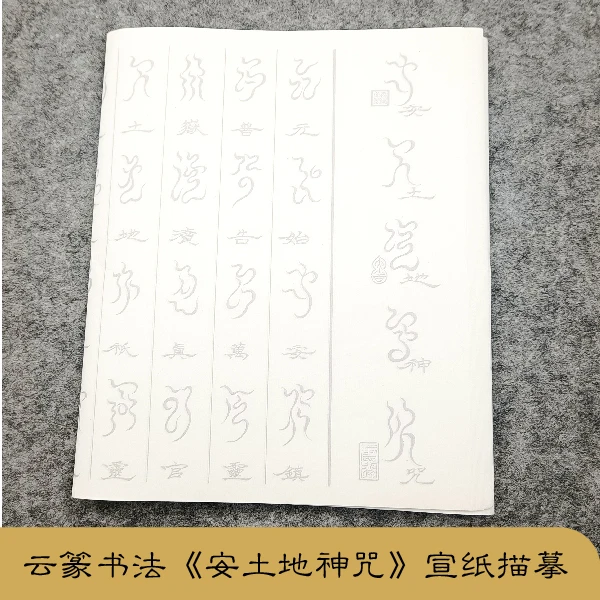 安土地神咒
元始安鎮
普告萬靈
嶽瀆真官
土地祇靈
云篆书法《安土地神咒》宣纸描摹